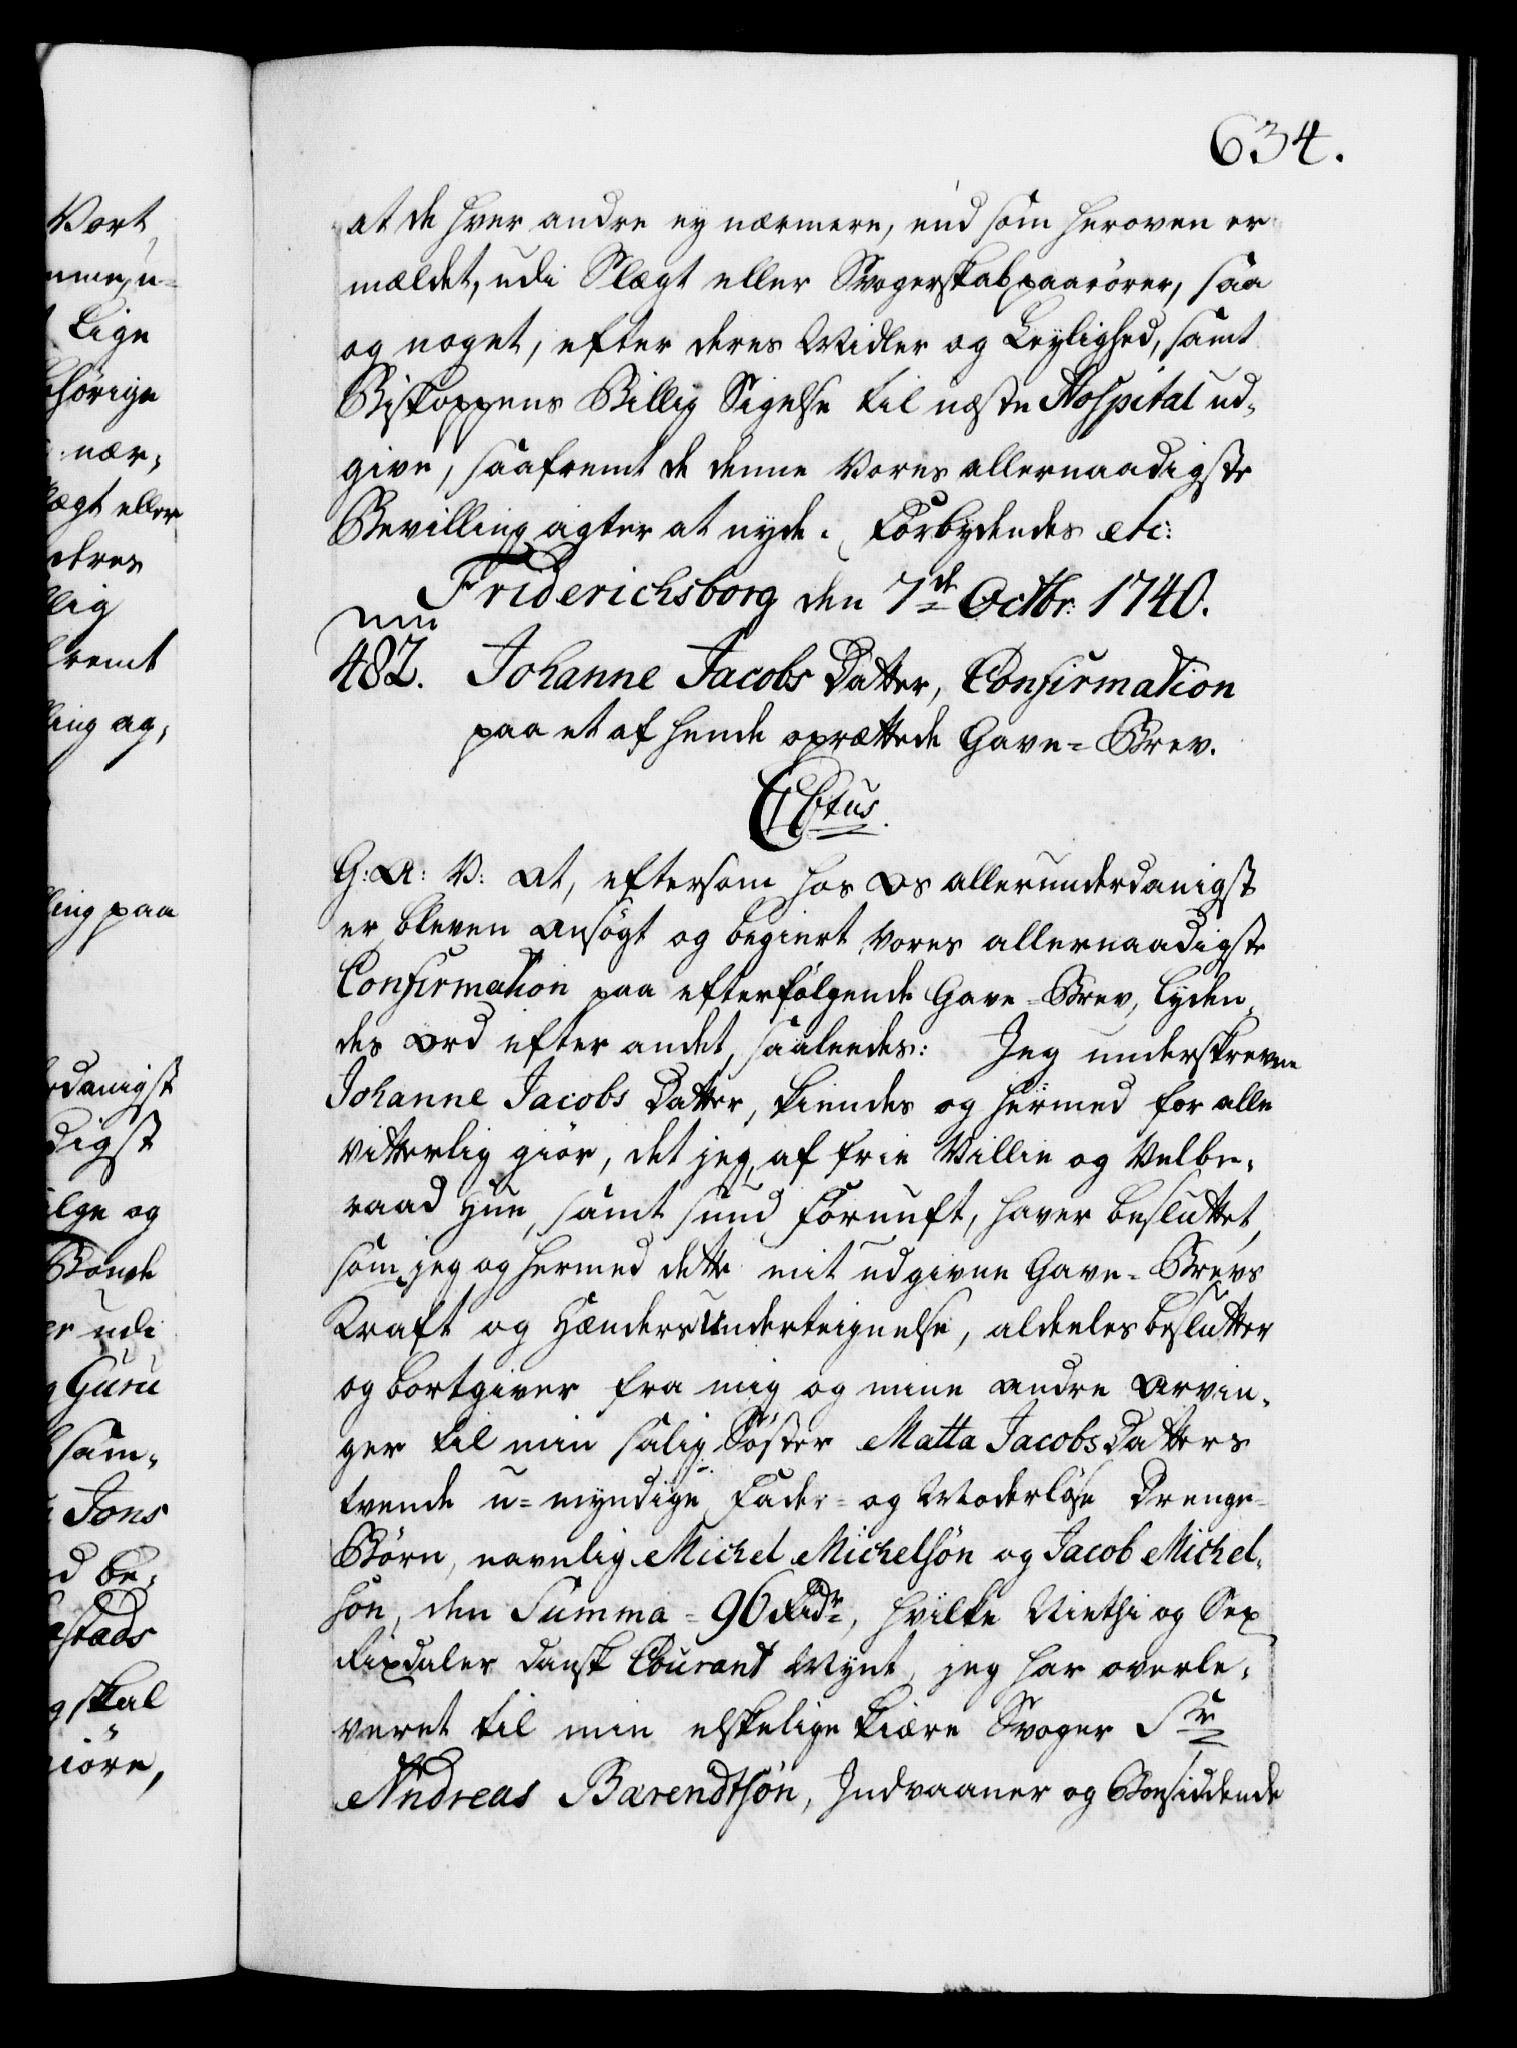 634.
at de hver andre ey nærmere, end som heroven er
mældet, udi Slægt eller Svogerskab paarörer, saa
og noget, efter deres Midler og Leylighed, samt
Biskoppens Billig Sigelse til næste Hospital ud-
give, saafremt de denne Vores allernaadigste
Bevilling agter at nyde. Forbydendes etc:
Friderichsborg den 7de Octbr: 1740.
482. Johanne Jacobs Datter, Confirmation
paa et af hende oprættede Gave-Brev.
C6tus.
G: A: V: At, eftersom hos Os allerunderdanigst
er bleven ansögt og begiert Vores allernaadigste
Confirmation paa efterfölgende Gave-Brev, lyden-
des Ord efter andet, saaleedes: Jeg underskrevne
Johanne Jacobs Datter, kiendes og hermed for alle
vitterlig giör, det jeg, af frie Villie og Velbe-
raad Hue, samt sund Fornuft, haver besluttet,
som jeg og hermed dette mit udgivne Gave-Brevs
Kraft og Hænders Underteignelse, aldeeles beslutter
og bortgiver fra mig og mine andre Arvin-
ger til min salig Söster Matta Jacobs Datters
tvende u-myndige Fader- og Moderlöse Drenge-
Börn, navnlig Michel Michelsön og Jacob Michel-
sön, den Summa - 96 Rdr, hvilke Niethi og Sex
Rixdaler dansk Courant Mynt, jeg har overle-
veret til min elskelige kiære Svoger Sr
Andreas Barendtsön, Indvaaner og Boesiddende
Vort
Lige
hörige
nær-
ægt eller
deres
lig
fremt
ling ag-
ling paa
rdanigst
digst
og
Bonde
er udi
Guru
sam-
Jons
d be-
stads
skal
giöre,